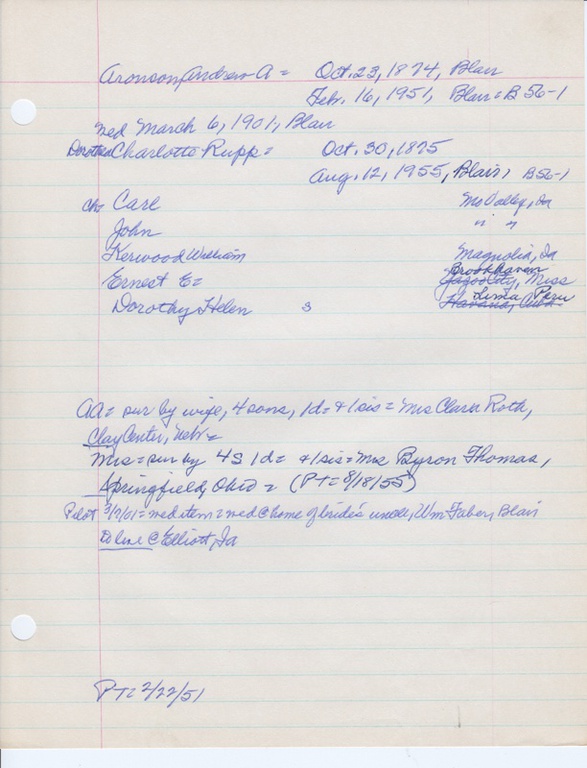 Aronson, Andrew A = Oct. 23, 1874, Blair
Feb. 16, 1951, Blair = B 56-1
Wed March 6, 1901, Blair
Dorothea Charlotte Rupp = Oct. 30, 1875
Aug. 12, 1955, Blair, B56-1
ch- Carl Mo Valley, Ia
John " "
Kerwood William Magnolia, Ia
Brookhaven
Ernest E = Yazoo City, Miss
Lima Peru
Dorothy Helen 3 Havana, Cuba
AA = sur by wife, 4 sons, 1d = & 1 sis = Mrs Clara Roth,
Clay Center, Nebr =
Mrs = sur by 4S 1d = & 1 sis = Mrs Byron Thomas,
Springfield, Ohio = (PT = 8/18/55)
Pilot 3/7/01 = wed item = wed @ home of bride's uncle, Wm Faber, Blair
To live @ Elliott, Ia
PT = 2/22/51